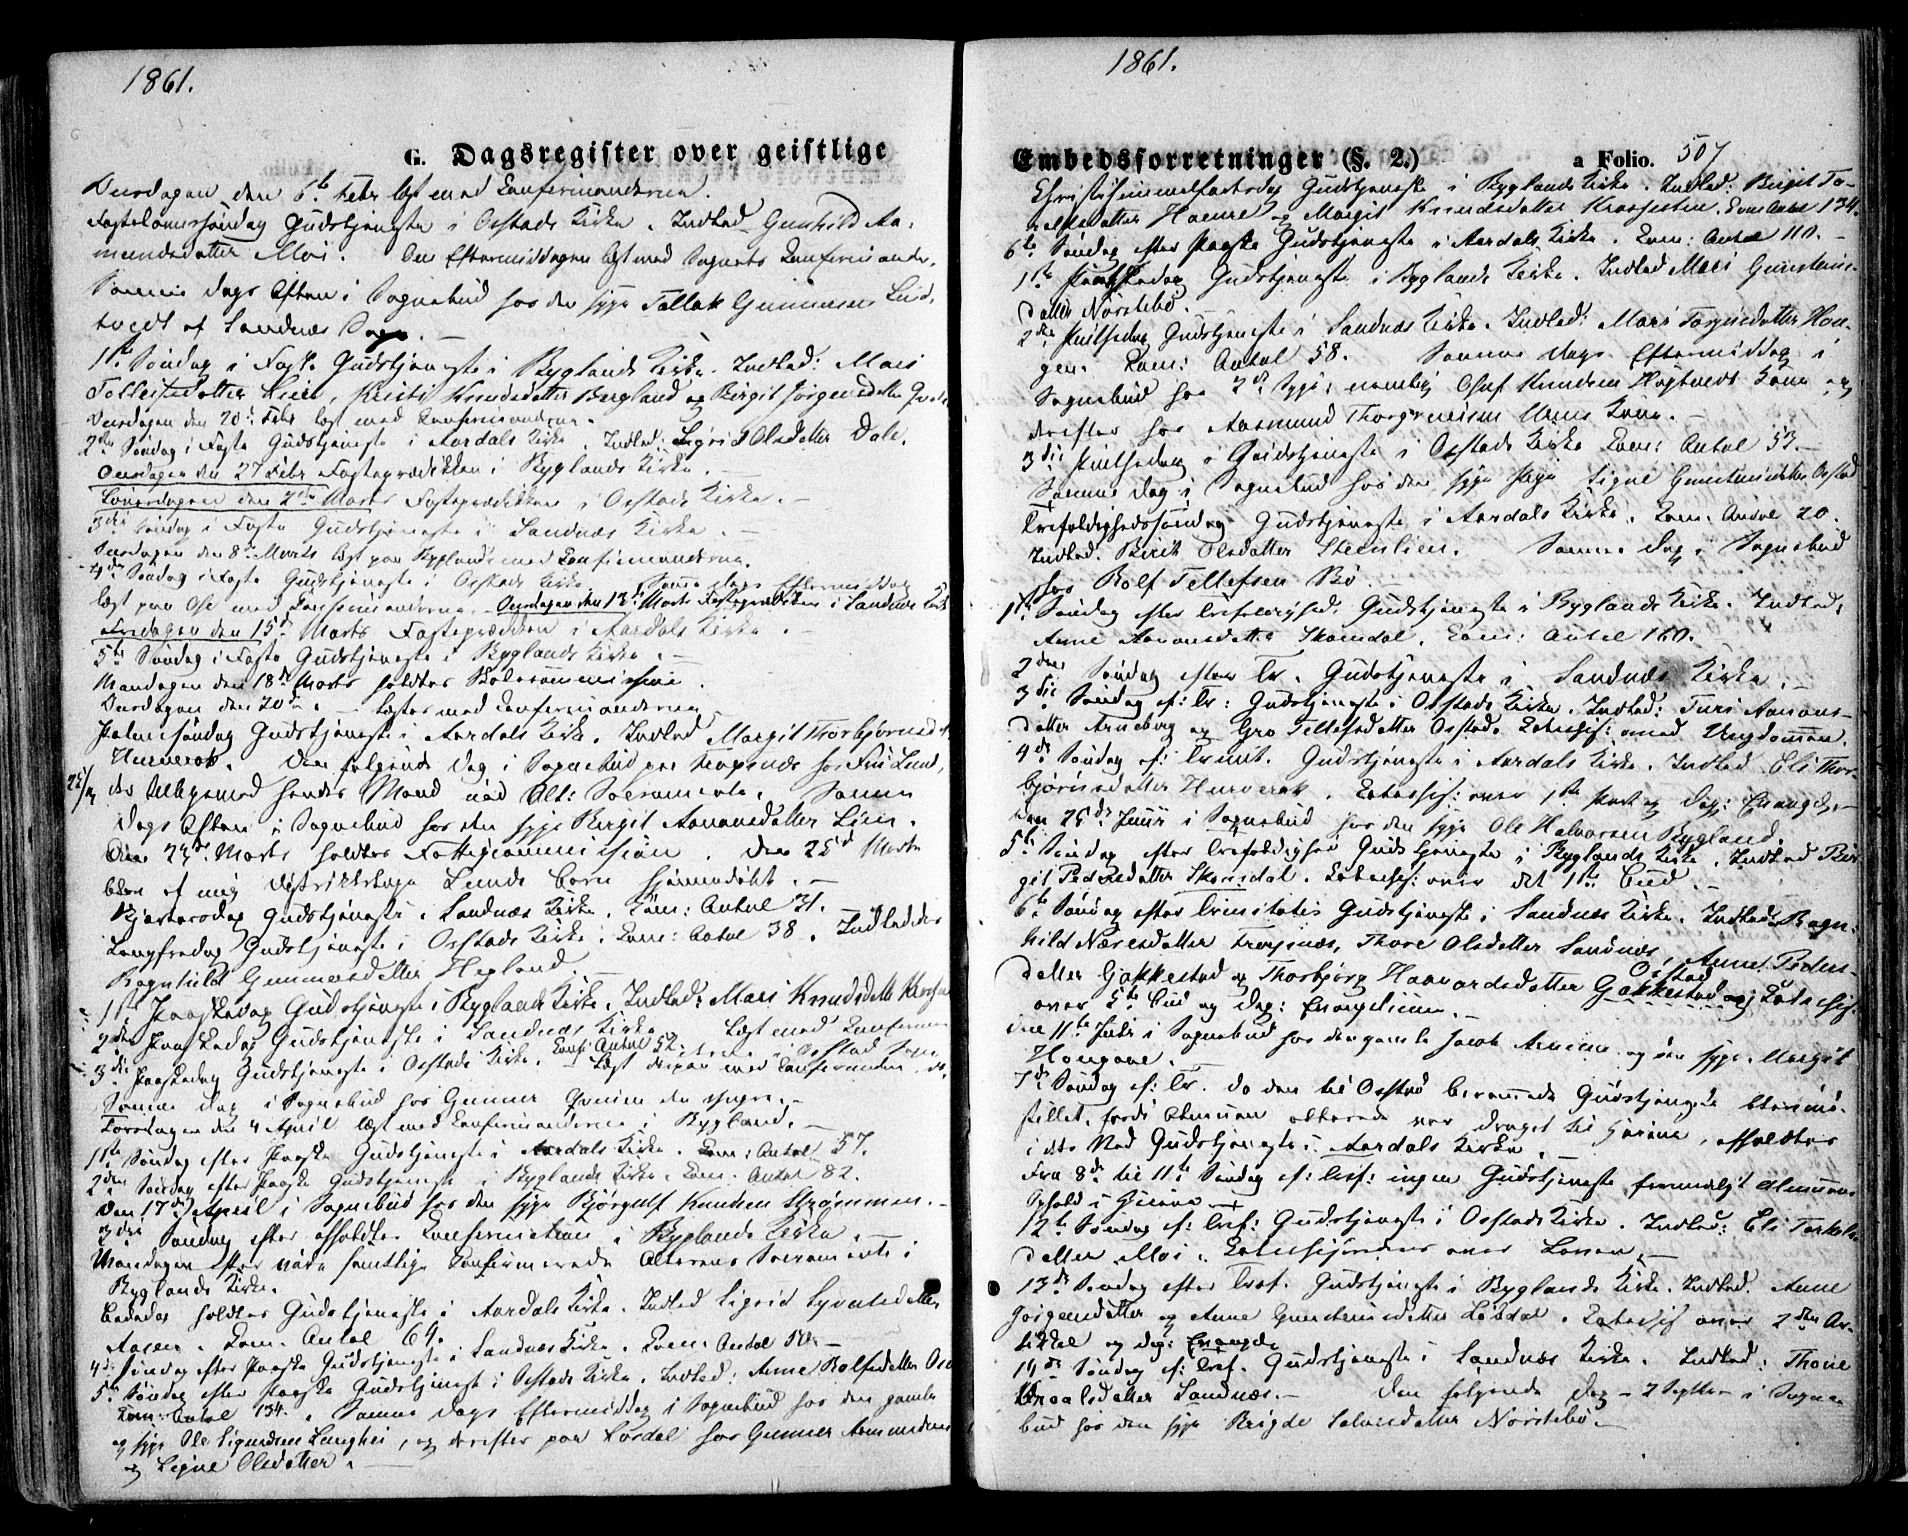 1861.
G. Dagsregister over geistlige
Onsdagen den 6te Febr læst med Confirmanderne.
Fastelavnssøndag Gudstjeneste i Osstads Kirke. Indled Gunhild Aa-
mundsdatter Moi. Om Eftermiddagen læst med Sognets Confirmander.
Samme Dags Aften i Sognebud hos den syge Tallak Gunnersen
af Sandnæs Sogn.
1ste Søndag i Faste Gudstjeneste i Byglands Kirke. Indled: Mari
Tollefsdatter, Kristi Knudsdatter Bergland og Birgit Jørgensdatter
Onsdagen den 20de Febr læst med Confirmanderne.
2den Søndag i Faste Gudstjeneste i Aardals Kirke. Indled: Sigrid Olsdatter Dale.
Onsdagen den 27 Febr Fasteprædiken i Byglands Kirke.
Løverdagen den 2den Marts Fasteprædiken i Osstads Kirke.
3die Søndag i Faste Gudstjeneste i Sandnæs Kirke.
den 8de Marts læst paa Bygland med Confirmanderne.
4de Søndag i Faste Gudstjeneste i Osstads Kirke. Samme Dags Eftermiddag
læst paa Ose med Confirmanderne. Onsdagen den 13de Marts Fasteprædiken i Sandnæs Kirke
Fredagen den 15de Marts Fasteprædiken i Aardals Kirke.
5te Søndag i Faste Gudstjeneste i Byglands Kirke.
Mandagen den 18de Marts holdtes
Onsdagen den 20de læstes med Confirmanderne
Palmesøndag Gudstjeneste i Aardals Kirke. Indled Margit Thorbjørnsd
Hurverak. Den følgende Dag i Sognebud paa Frøysnæs hos
25/3 hendes Mand nød Alt: Sacramente. Samme
Dags Aften i Sognebud hos den syge Birgit Aanonsdatter Lien.
Den 23de Marts holdtes Fattigcommission. Den 25de Marts
blev af mig Barn hjemmedøbt.
Skjærtorsdag Gudstjeneste i Sandnæs Kirke. Com: Antal 31.
Langfredag Gudstjeneste i Osstads Kirke. Com: Antal 38. Indlededes
Ragnhild Gunnersdatter Hegland.
1ste Paaskedag Gudstjeneste i Byglands Kirke. Indled: Mari Knudsdatter
2den Paaskedag Gudstjeneste i Sandnæs Kirke. Læst med Confirman
3die Paaskedag Gudstjeneste i Osstads Kirke. Conf: Antal 52. Læst med Confirmander
Samme Dag i Sognebud hos Gunner
Torsdagen den 4 April læst med Confirmanderne i Bygland.
1ste Søndag efter Paaske Gudstjeneste i Aardals Kirke. Com: Antal 57.
2den Søndag efter Paaske Gudstjeneste i Byglands Kirke. Com: Antal 82.
Den 17de April i Sognebud hos den syge Bjørgulf Knudsen Strømmen.
3die Søndag efter afholdtes Confirmation i Byglands Kirke.
Mandagen efter nøde samtlige Confirmerede Alterens Sacramente i
Byglands Kirke.
Bededag holdtes Gudstjeneste i Aardals Kirke. Indled Sigrid Syvertsdatter
Aasen. Com. Antal 64.
4de Søndag efter Paaske Gudstjeneste i Sandnæs Kirke. Com: Antal 50.
5te Søndag efter Paaske Gudstjeneste i Osstads Kirke. Indled: Anne Rolfsdatter Ose
Com: Antal 134. Samme Dags Eftermiddag i Sognebud hos den gamle
og syge Ole Sigurdsen Langhei, og derefter paa Lordal hos Gunner Aamundsen
og Signe Olsdatter.
1861.
Embedsforretninger (§. 2.) a Folio. 507
Christihimmelfartsdag Gudstjeneste i Byglands Kirke. Indled: Birgit To-
refsdatter Haamre og Margit Knudsdatter. Com: Antal 134.
6te Søndag efter Paaske Gudstjeneste i Aardals Kirke. Com: Antal 110.
1ste Pintsedag Gudstjeneste i Byglands Kirke. Indled Mari Gunstens-
datter Norstebø.
2den Pintsedag Gudstjeneste i Sandnæs Kirke. Indled: Mari Tarjusdatter Hon-
gen. Com: Antal 58. Samme Dags Eftermiddag i
Sognebud hos 2de Syge, nemlig Oluf Knudsen Høgtvedts Kone og
derefter hos Aasmund Thorgrimsen Kone.
3die Pintsedag Gudstjeneste i Osstads Kirke Com: Antal 53.
Samme Dag i Sognebud hos den syge Pige Signe Gunsteinsdatter Osstad
Trefoldighedssøndag Gudstjeneste i Aardals Kirke. Com: Antal 20.
Indled: Birit Olsdatter Steinslien. Samme Dag i Sognebud
hos Rolf Tellefsen Bø.
1ste Søndag efter Trefoldighed: Gudstjeneste i Byglands Kirke. Indled:
Anne Aanonsdatter Skomdal. Com: Antal 160.
2den Søndag efter Tr. Gudstjeneste i Sandnæs Kirke.
3die Søndag ef: Tr: Gudstjeneste i Osstads Kirke. Indled: Turi Aanons-
datter Arneberg og Gro Tellefsdatter Osstad. Catechis: med Ungdommen.
4de Søndag ef: Trinit. Gudstjeneste i Aardals Kirke. Indled Eli Thor-
bjørnsdatter Hurverak. Catechis: over 1ste Part og Dag: Evangel.
Den 25de Juni i Sognebud hos den syge Ole Halvorsen Bygland.
5te Søndag efter Trefoldighed Gudstjeneste i Byglands Kirke. Indled Bir-
git Pedersdatter Skomdal. Catechis: over det 1ste Bud.
6te Søndag efter Trinitatis Gudstjeneste i Sandnæs Kirke. Indled: Ragn-
hild Næresdatter Frøysnæs, Thore Olsdatter Sandnæs, Anne Peders-
datter Gakkestad og Thorbjørg Haavardsdatter Gakkestad Osstad og Catechis:
over 5te Bud og Dag: Evangelium.
Den 11te Juli i Sognebud hos den gamle Jacob og den syge Margit
Hongane.
7de Søndag ef: Tr. da den til Osstad berammede Gudstjeneste blev ind-
stillet, fordi Almuen allerede var draget til Heierne, afholdtes
i dets Sted Gudstjeneste i Aardals Kirke.
Fra 8de til 11te Søndag ef: Tref: ingen Gudstjeneste formedelst Almuens
Ophold i Heierne
12te Søndag ef: Tref: Gudstjeneste i Osstads Kirke. Indled: Eli Torkels-
datter Moi. Catechisjordnes over Loven.
13de Søndag efter Tref. Gudstjeneste i Byglands Kirke. Indled: Anne
Jørgensdatter og Anne Gunsteinsdatter Løvdal. Catechis over 2den Ar-
tikkel og Dag: Evangel
14de Søndag ef: Tref. Gudstjeneste i Sandnæs Kirke. Indled: Thone
Sandnæs. Den følgende Dag – 2 Septbr – i Sogne-
bud hos den syge Salvesdatter Norstebø.